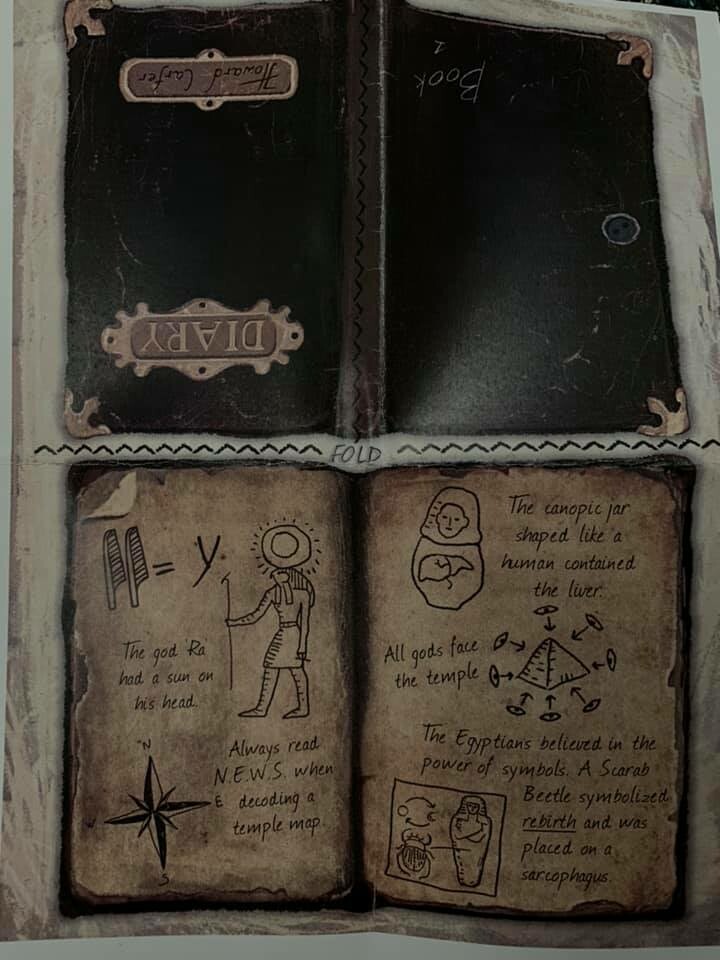 Howard Carter
DIARY
Book
1
FOLD
= y.
The god 'Ra'
had a sun on
his head.
N
Always read
N.E.W.S. when
E decoding a
temple map.
W
S
The canopic jar
shaped like a
human contained
the liver.
All gods face
the temple
The Egyptians believed in the
power of symbols. A Scarab
Beetle symbolized
rebirth and was
placed on a
sarcophagus.